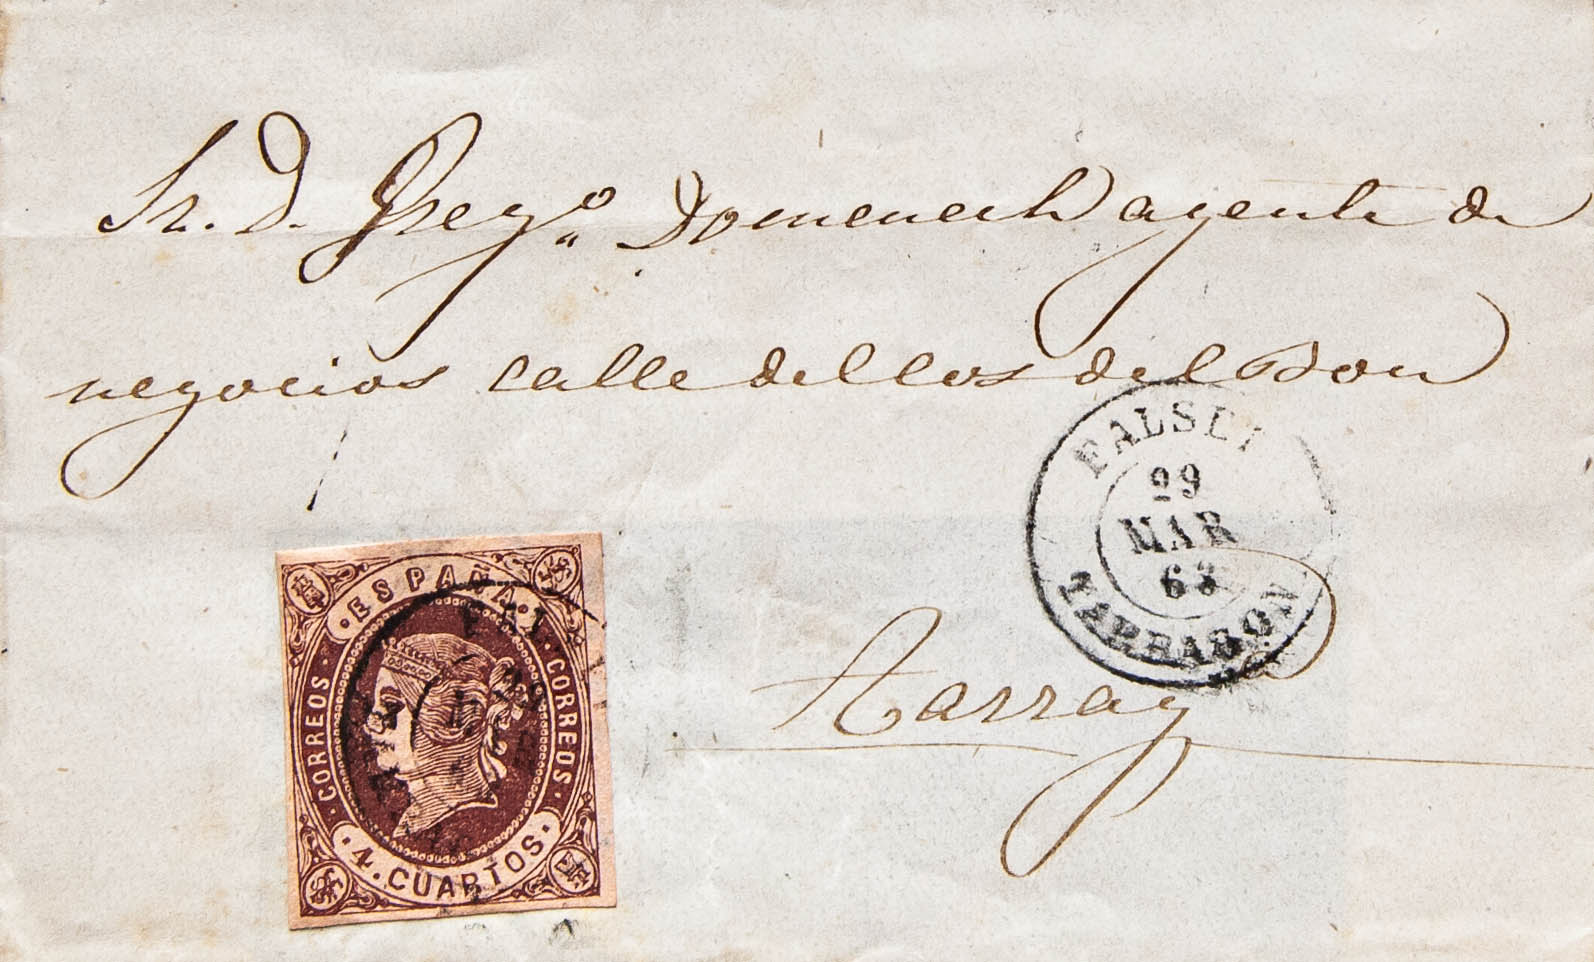 Sr. D. Greg.º Domenech agente de
negocios calle del los del Bou
FALSET
29
MAR
63
TARRAGON
Tarrag
·ESPAÑA·
·CORREOS·
·CORREOS·
·4·CUARTOS·